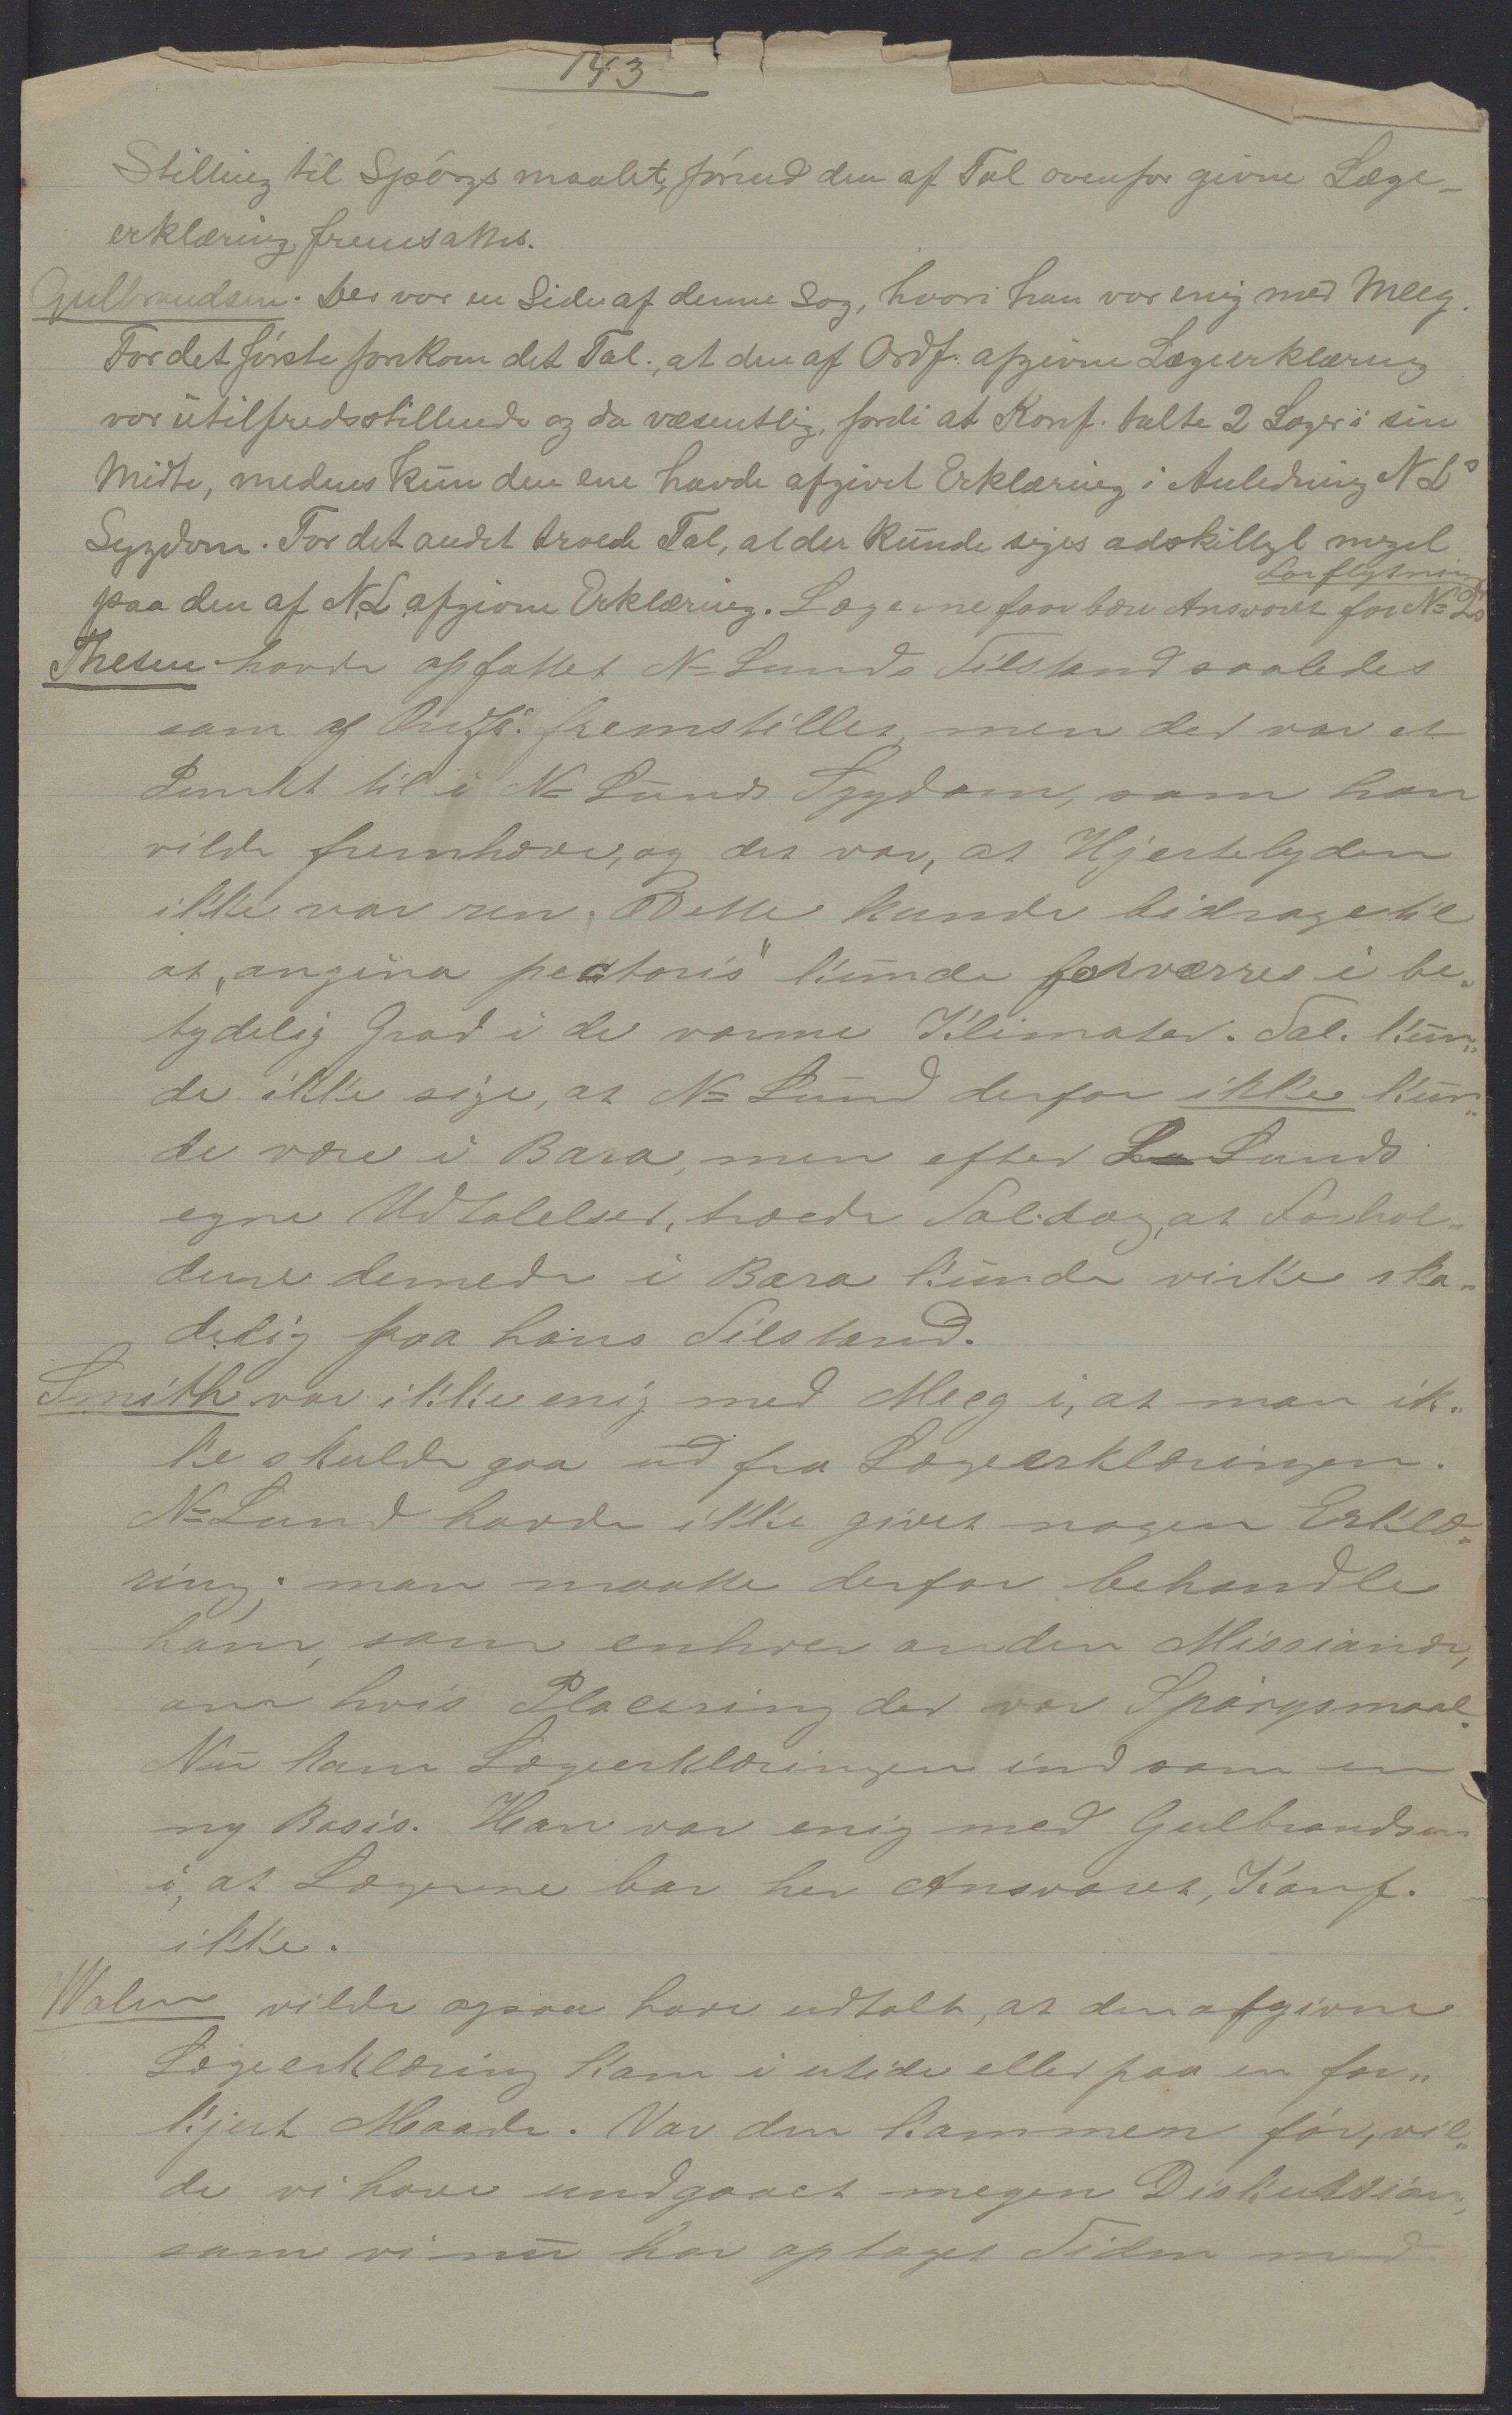 143
Stilling til Spörgsmaalet, förend den af Tal ovenfor givne Læge-
erklæring fremsattes.
Gulbrandsen. Der var en Side af denne Sag, hvori han var enig med Meeg.
For det förste forekom det Tal., at den af Ordf. afgivne Lægeerklæring
var utilfredsstillende og da væsentlig, fordi at Konf. talte 2 Læger i sin
Midte, medens kun den ene havde afgivet Erklæring i Anledning N Ls
Sygdom. For det andet troede Tal, at der kunde siges adskilligt meget
Forflytning
paa den af N.L. afgivne Erklæring. Lægerne faar bære Ansvaret for N= Ls
Thesen havde opfattet N= Lunds Tilstand saaledes
som af Ordf. fremstillet, men der var et
Punkt til i N= Lunds Sygdom, som han
vilde fremhæve, og det var, at Hjertelyden
ikke var ren. Dette kunde bidrage til
at „angina pectoris" kunde forværres i be„
tydelig Grad i de varme Klimater. Tal. kun„
de ikke sige, at N= Lund derfor ikke kun„
de være i Bara, men efter Lu Lunds
egne Udtalelser, troede Tal. dog, at Forhol„
dene dernede i Bara kunde virke ska„
delig paa hans Tilstand.
Smith var ikke enig med Meeg i, at man ik„
ke skulde gaa ud fra Lægeerklæringen.
N= Lund havde ikke givet nogen Erklæ„
ring; man maatte derfor behandle
ham, som enhver anden Missionær,
om hvis Placering der var Spörgsmaal.
Nu kom Lægeerklæringen ind som en
ny Basis. Han var enig med Gulbrandsen
i, at Lægerne bar her Ansvaret, Konf.
ikke.
Walen vilde ogsaa have udtalt, at den afgivne
Lægeerklæring kom i utide eller paa en for„
kjert Maade. Var den kommen för, vil„
de vi have undgaaet megen Diskussion,
som vi nu har optaget Tiden med